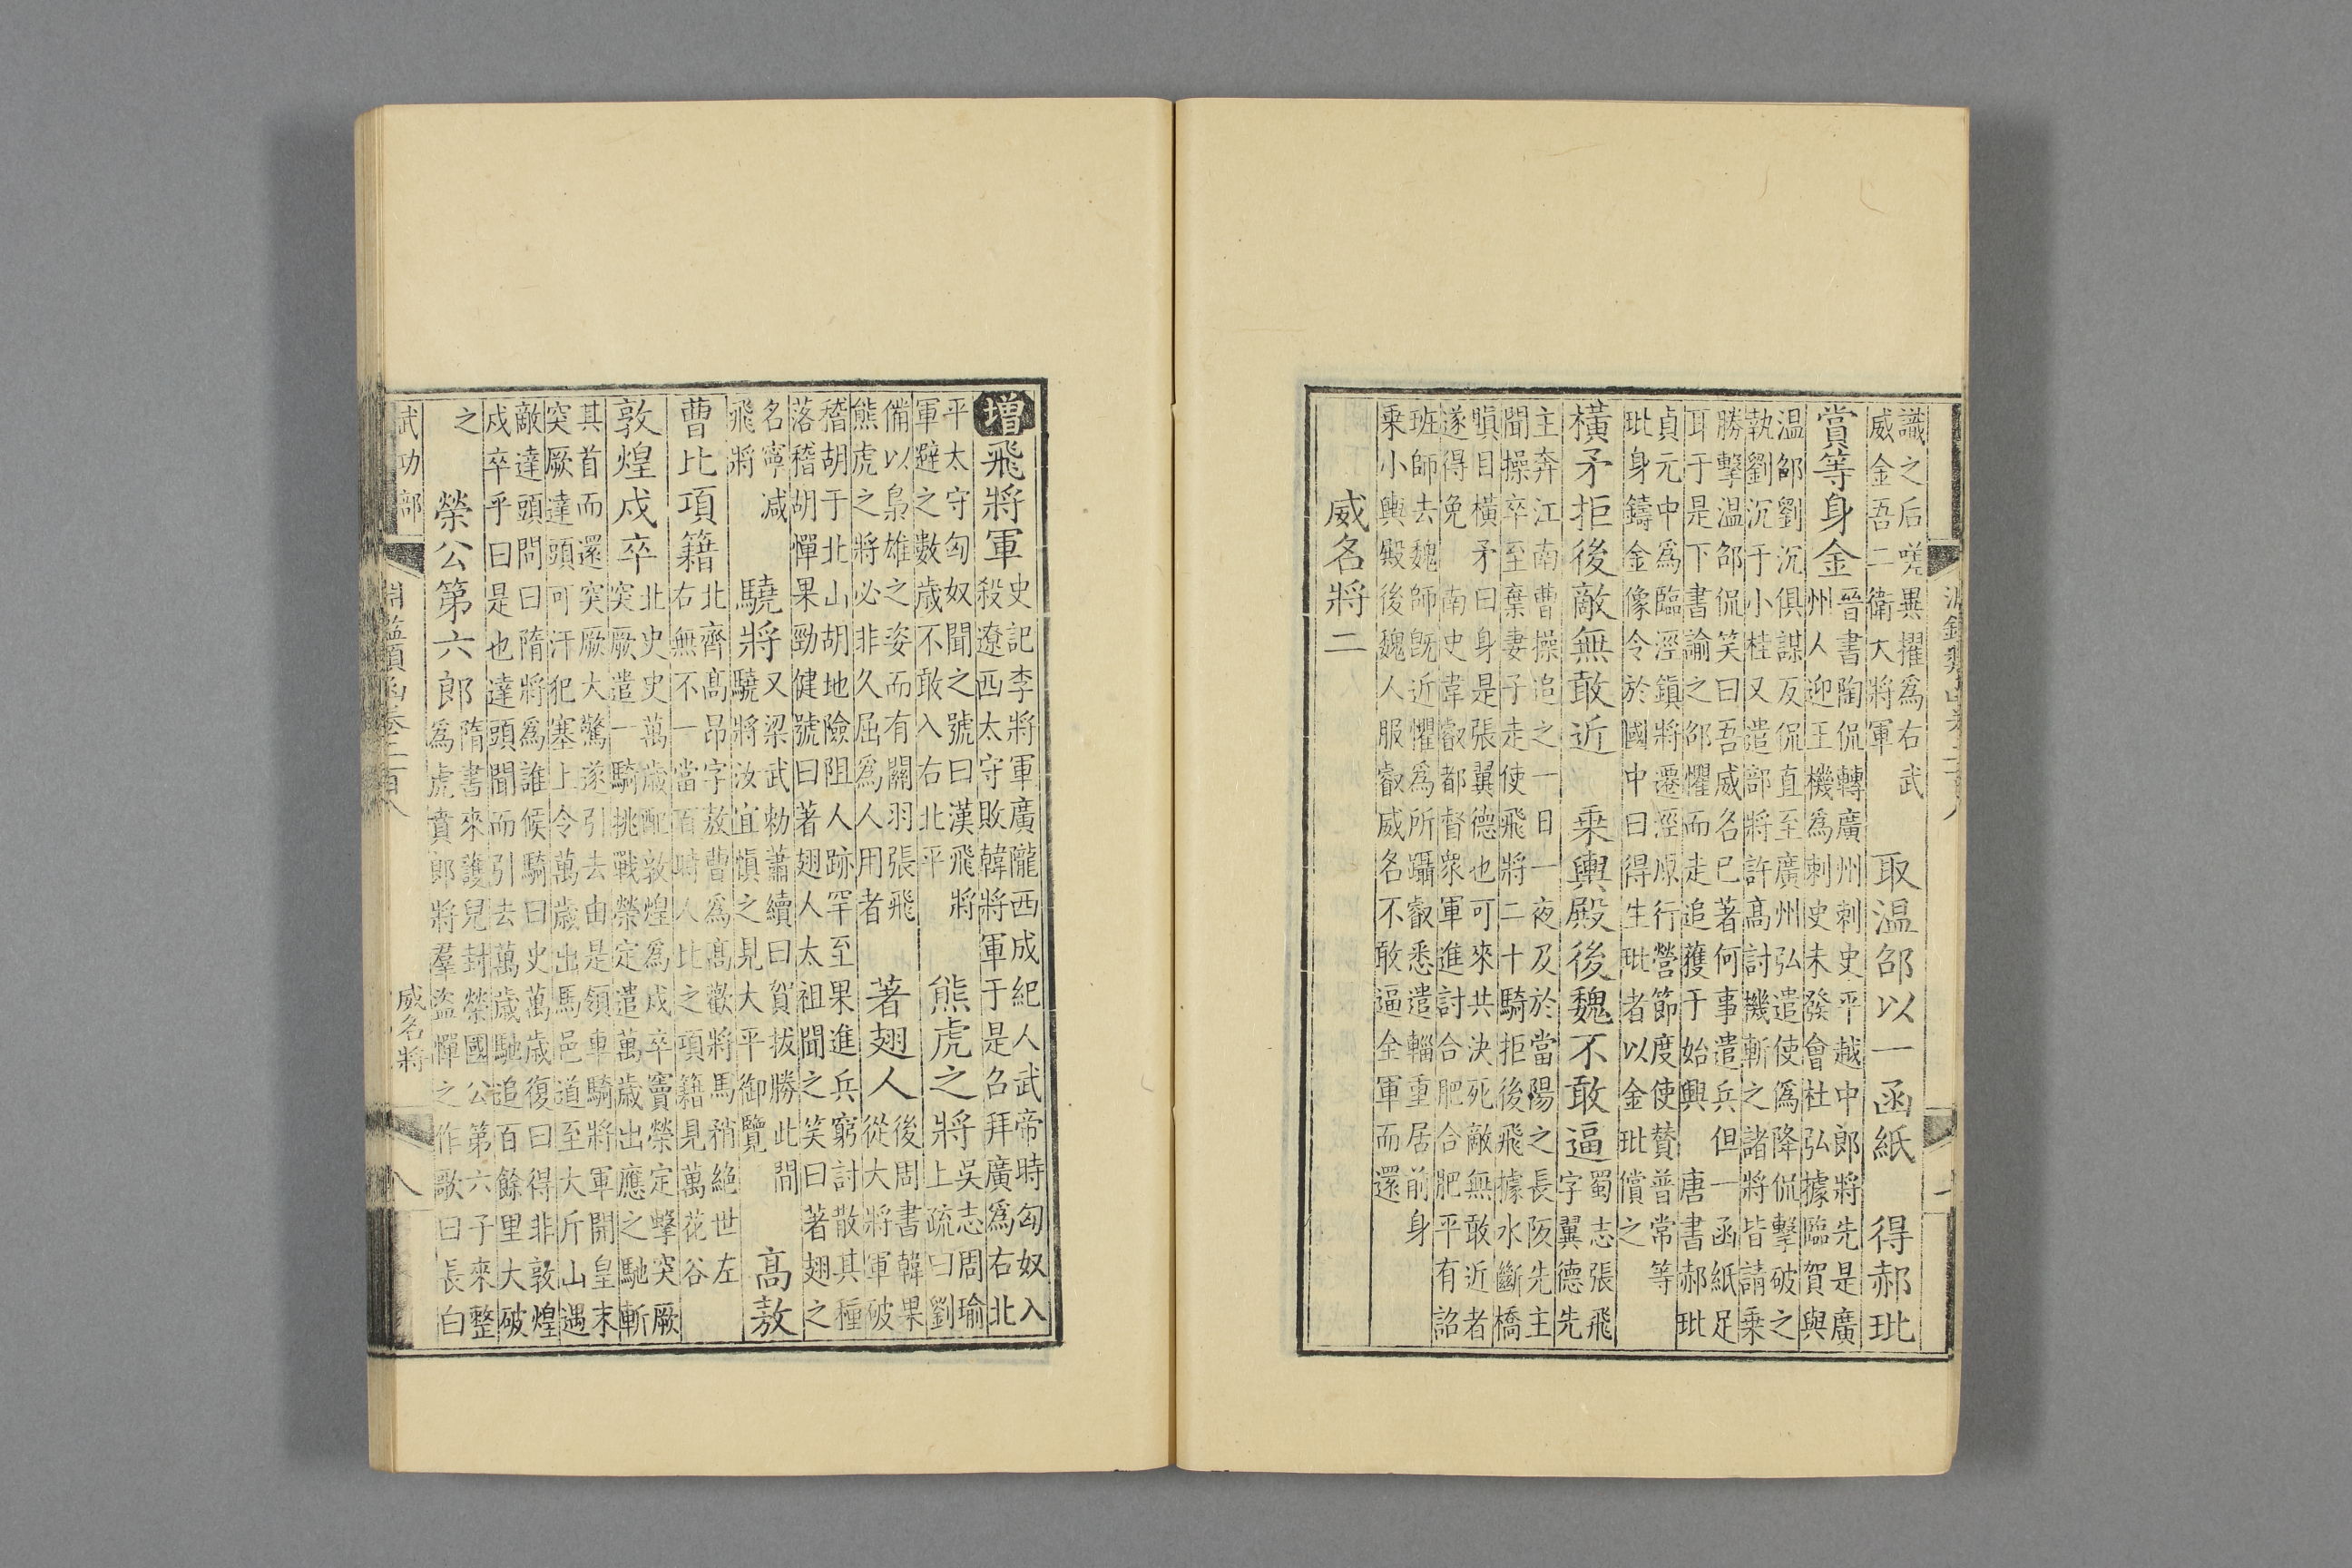 識之后嗟異擢為右武
威金吾二衛大將軍
取温邵以一函紙　得郝玼
賞等身金
晉書陶侃轉廣州刺史平越中郎將先是廣
州人迎王機爲刺史未發會杜弘據臨賀與
温邵劉沉俱謀反侃直至廣州弘遣使偽降侃擊破之
執劉沉于小桂又遣部將許高討機斬之諸將皆請乗
勝擊温邵侃笑曰吾威名已著何事遣兵但一函紙足
耳于是下書諭之邵懼而走追獲于始興　唐書郝玼
貞元中爲臨涇鎮將遷涇原行營節度使贊普常等
玼身鑄金像令於國中曰得生玼者以金玼償之
橫矛拒後敵無敢近　乗輿殿後魏不敢逼
蜀志張飛
字翼德先
主奔江南曹操追之一日一夜及於當陽之長阪先主
聞操卒至棄妻子走使飛將二十騎拒後飛據水斷橋
瞋目橫矛曰身是張翼德也可來共決死敵無敢近者
遂得免　南史韋叡都督衆軍進討合肥合肥平有詔
班師去魏師旣近懼爲所躡叡悉遣輜重居前身
乗小輿殿後魏人服叡威名不敢逼全軍而還
威名將二
增飛將軍
史記李將軍廣隴西成紀人武帝時匈奴入
殺遼西太守敗韓將軍于是召拜廣爲右北
平太守匈奴聞之號曰漢飛將
軍避之數歲不敢入右北平
熊虎之將
吳志周瑜
上疏曰劉
備以梟雄之姿而有關羽張飛
熊虎之將必非久屈爲人用者
著翅人
後周書韓果
從大將軍破
稽胡于北山胡地險阻人跡罕至果進兵窮討散其種
落稽胡憚果勁健號曰著翅人太祖聞之笑曰著翅之
名寧减
飛將
驍將
又梁武勅蕭續曰賀拔勝此間
驍將汝宜慎之見大平御覽
高敖
曹比項籍
北齊高昂字敖曹爲高歡將馬矟絶世左
右無不一當百時人比之項籍見萬花谷
敦煌戍卒
北史史萬歲配敦煌爲戍卒竇榮定擊突厥
突厥遣一騎挑戰榮定遣萬歲出應之馳斬
其首而還突厥大驚遂引去由是領車騎將軍開皇末
突厥達頭可汗犯塞上令萬歲出馬邑道至大斤山遇
敵達頭問曰隋將爲誰候騎曰史萬歲復曰得非敦煌
戍卒乎曰是也達頭聞而引去萬歲馳追百餘里大破
之
榮公第六郎
隋書來護兒封榮國公第六子來整
爲虎賁郎將羣盜憚之作歌曰長白
武功部
淵鑑類函卷二百八
威名將
八